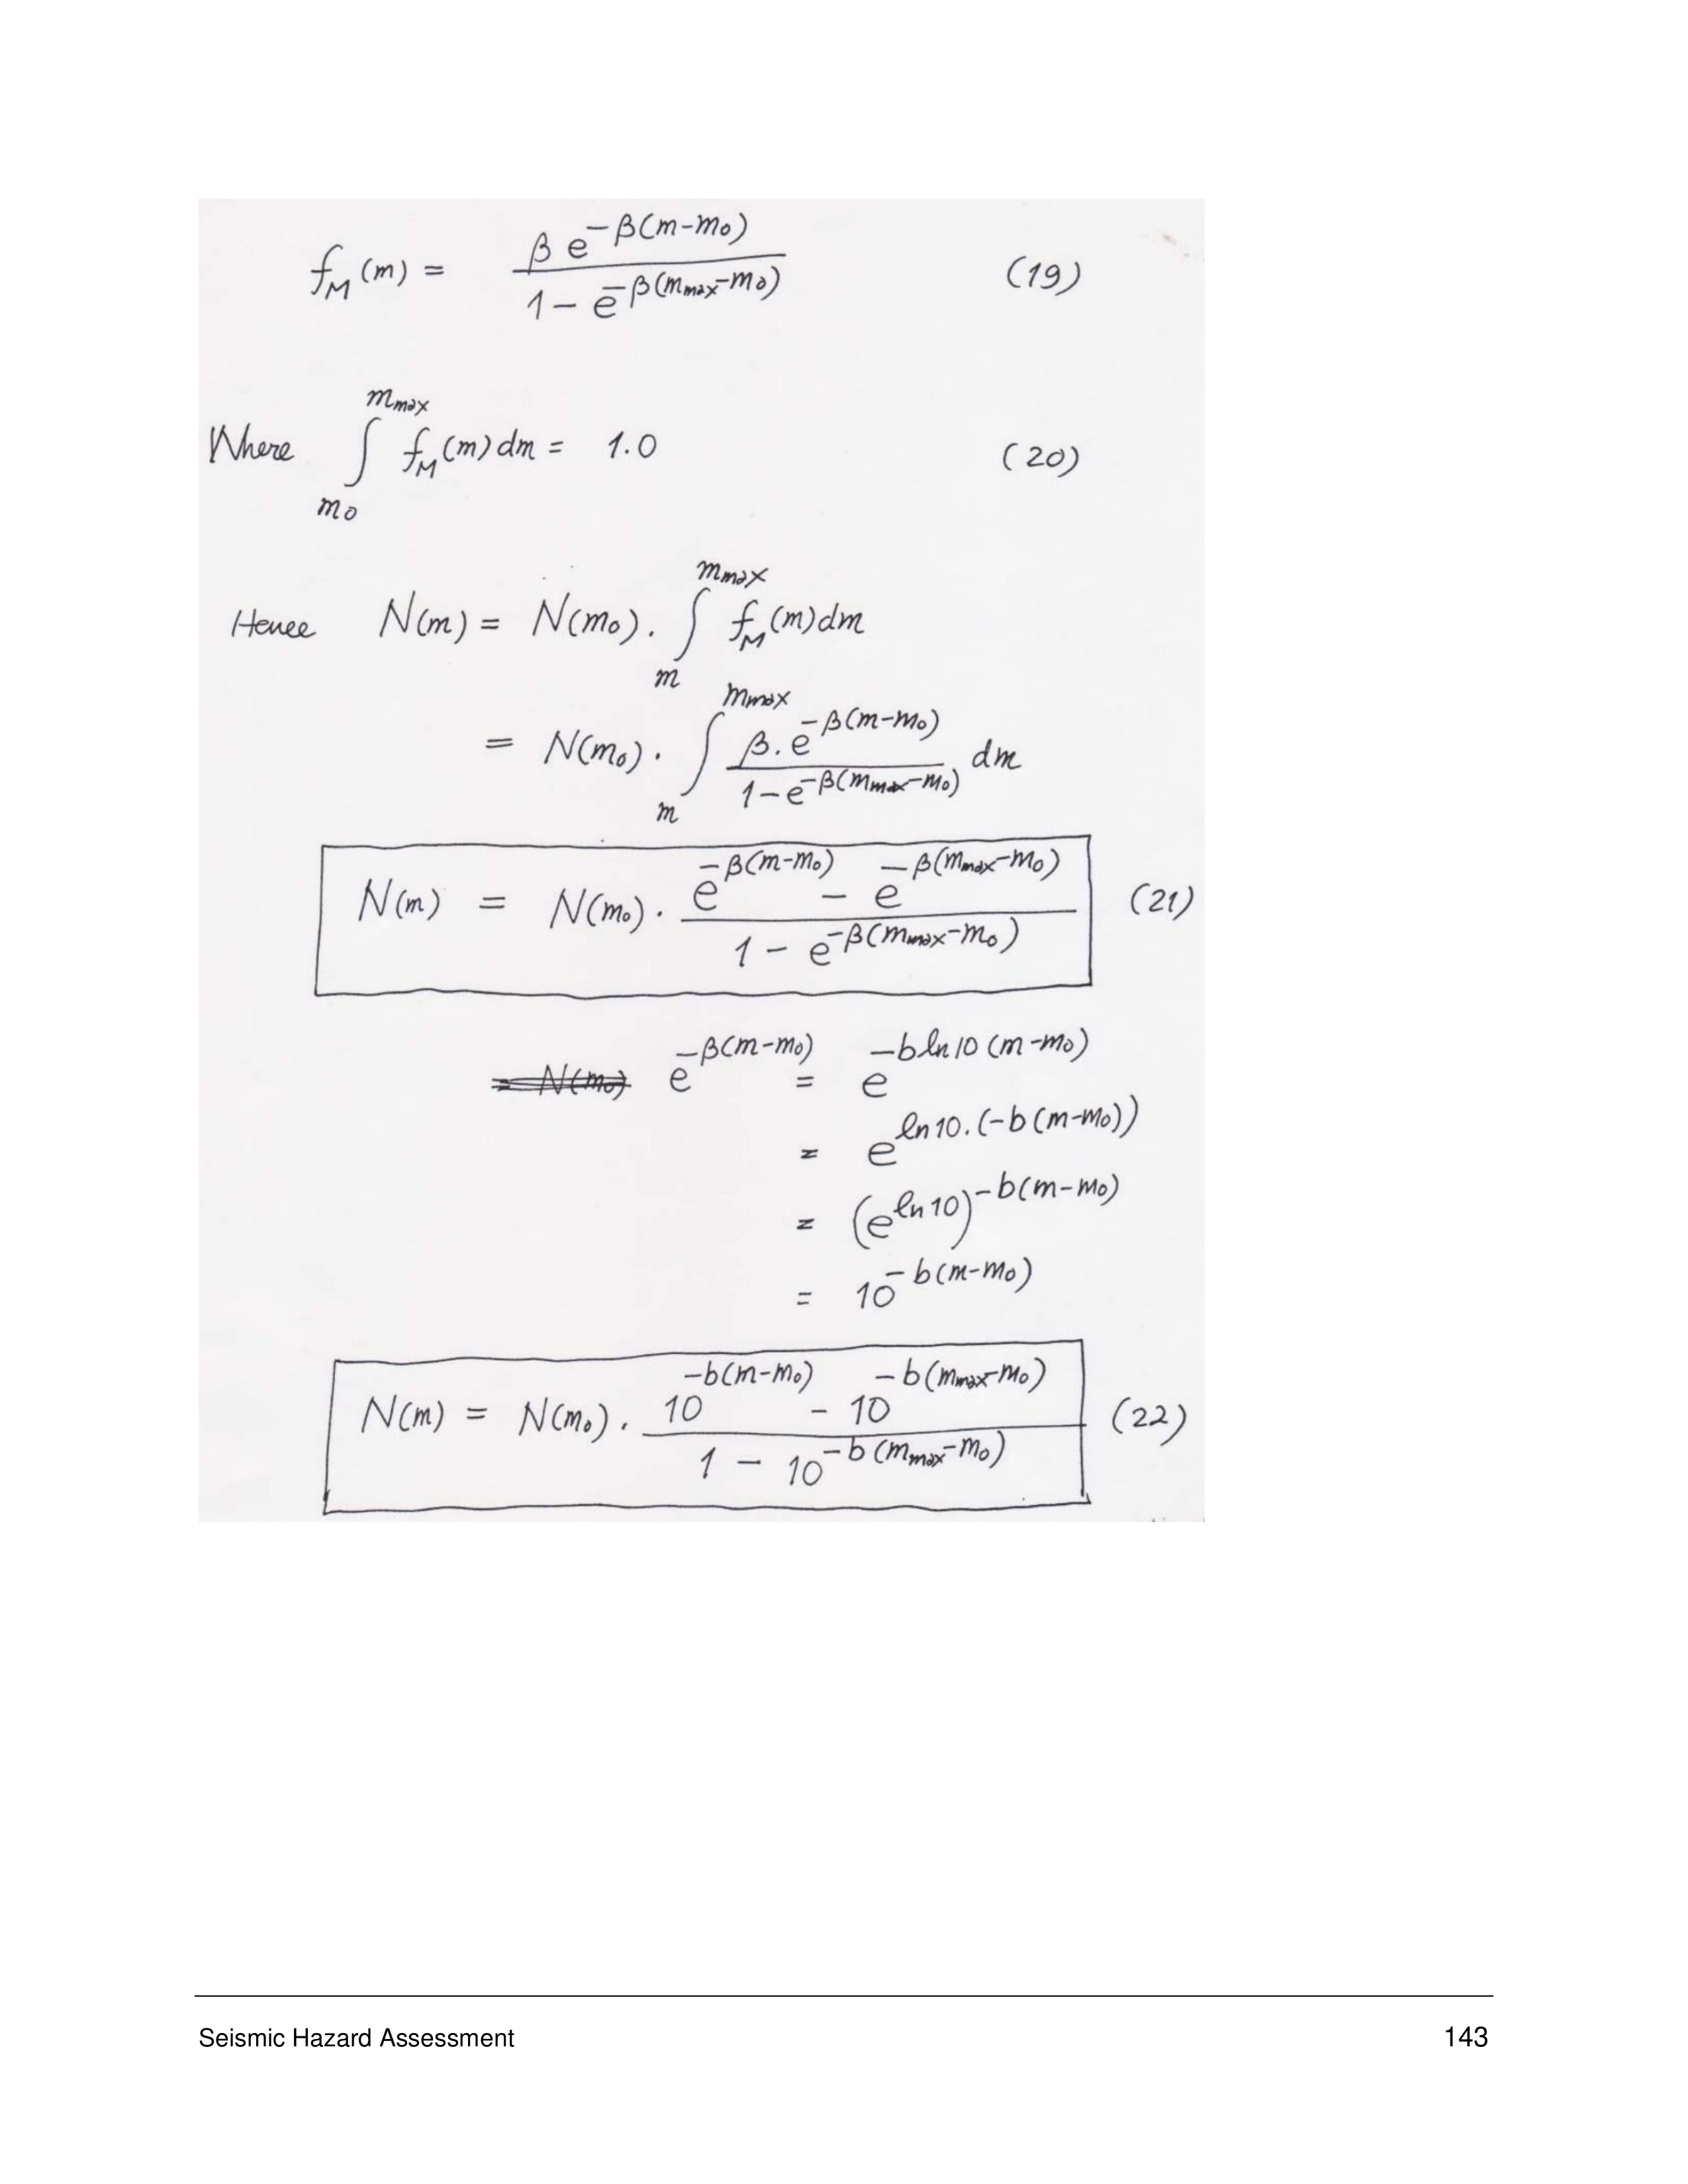 f_M(m) = \frac{β e^{-β(m-m_0)}}{1 - e^{-β(m_{max}-m_0)}} (19)
Where \int_{m_0}^{m_{max}} f_M(m) dm = 1.0 (20)
Hence N(m) = N(m_0) . \int_{m}^{m_{max}} f_M(m) dm
= N(m_0) . \int_{m}^{m_{max}} \frac{β . e^{-β(m-m_0)}}{1 - e^{-β(m_{max}-m_0)}} dm
N(m) = N(m_0) . \frac{e^{-β(m-m_0)} - e^{-β(m_{max}-m_0)}}{1 - e^{-β(m_{max}-m_0)}} (21)
= N(m_0) e^{-β(m-m_0)} = e^{-b ln 10 (m-m_0)}
= e^{ln 10 . (-b(m-m_0))}
= (e^{ln 10})^{-b(m-m_0)}
= 10^{-b(m-m_0)}
N(m) = N(m_0) . \frac{10^{-b(m-m_0)} - 10^{-b(m_{max}-m_0)}}{1 - 10^{-b(m_{max}-m_0)}} (22)
Seismic Hazard Assessment 143